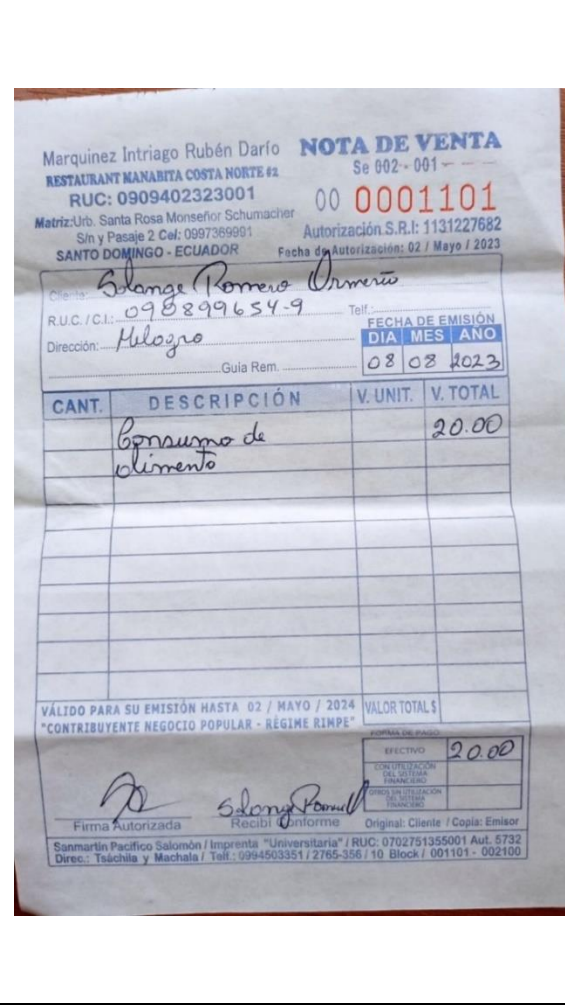 Marquinez Intriago Rubén Darío
RESTAURANT MANABITA COSTA NORTE #2
RUC: 0909402323001
Matriz:Urb. Santa Rosa Monseñor Schumacher
S/n y Pasaje 2 Cel: 0997369991
SANTO DOMINGO - ECUADOR
NOTA DE VENTA
Se 002 - 001
00 0001101
Autorización S.R.I: 1131227682
Fecha de Autorización: 02 / Mayo / 2023
Cliente: Solange Romero Ormeño
R.U.C. / C.I.: 098899654-9 Telf.:
Dirección: Milagro
Guia Rem.
FECHA DE EMISIÓN
DIA MES AÑO
08 08 2023
CANT. DESCRIPCIÓN V. UNIT. V. TOTAL
Consumo de 20.00
alimento
VÁLIDO PARA SU EMISIÓN HASTA 02 / MAYO / 2024 VALOR TOTAL $
"CONTRIBUYENTE NEGOCIO POPULAR - RÉGIME RIMPE"
FORMA DE PAGO
EFECTIVO 20.00
CON UTILIZACIÓN
DEL SISTEMA
FINANCIERO
OTROS SIN UTILIZACIÓN
DEL SISTEMA
FINANCIERO
Firma Autorizada
Recibí Conforme
Original: Cliente / Copia: Emisor
Sanmartín Pacífico Salomón / Imprenta "Universitaria" / RUC: 0702751355001 Aut. 5732
Direc.: Tsáchila y Machala / Telf.: 0994503351 / 2765-356 / 10 Block / 001101 - 002100